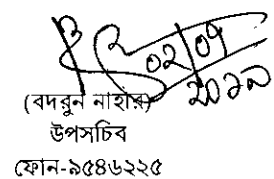 ০২|০৭
২০১৯
(বদরুন নাহার)
উপসচিব
ফোন-৯৫৪৬২২৫